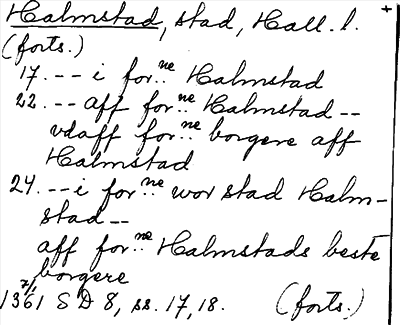 Halmstad, stad, Hall. l. +
(forts.)
17. -- i for:ne Halmstad
22. -- aff for:ne Halmstad --
vdaff for:ne borgere aff
Halmstad
24. -- i for:ne wor stad Halm-
stad --
aff for:ne Halmstads beste
borgere
1361 7/1 S D 8, ss. 17, 18. (forts.)